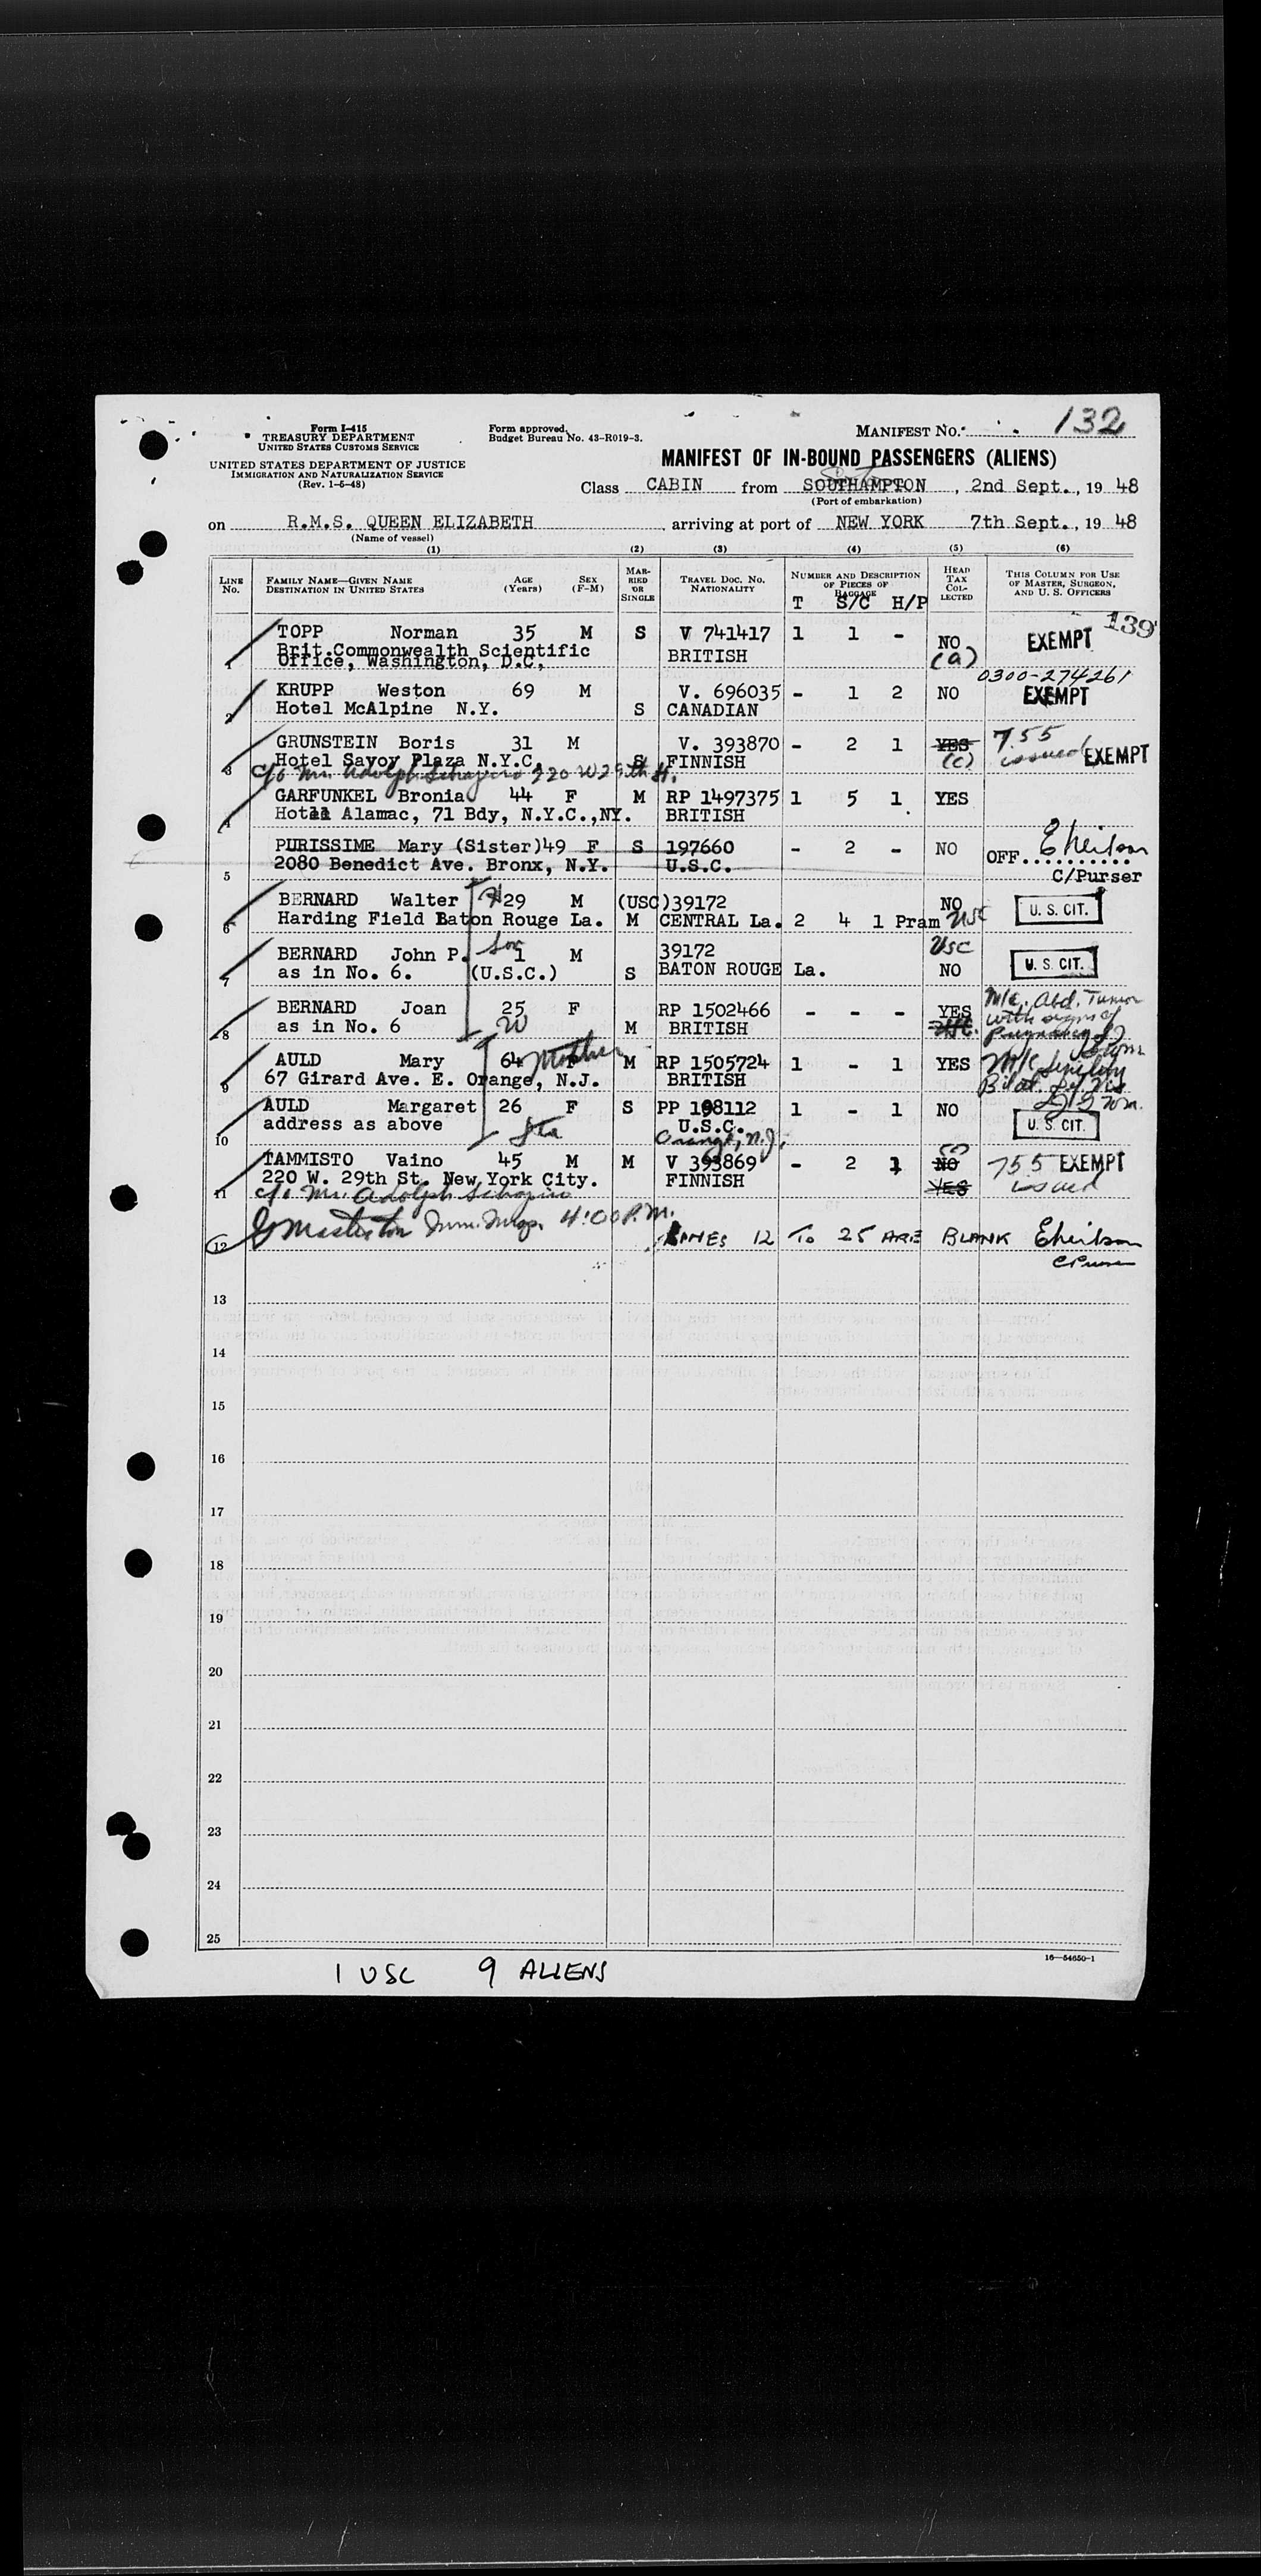 Form I-415
TREASURY DEPARTMENT
UNITED STATES CUSTOMS SERVICE
UNITED STATES DEPARTMENT OF JUSTICE
IMMIGRATION AND NATURALIZATION SERVICE
(Rev. 1-6-48)
Form approved.
Budget Bureau No. 43-R019-3.
MANIFEST NO. 132
MANIFEST OF IN-BOUND PASSENGERS (ALIENS)
Class CABIN from SOUTHAMPTON, 2nd Sept., 19 48
(Port of embarkation)
on R.M.S. QUEEN ELIZABETH arriving at port of NEW YORK 7th Sept., 19 48
(Name of vessel)
(1) (2) (3) (4) (5) (6)
LINE NO. FAMILY NAME—GIVEN NAME DESTINATION IN UNITED STATES AGE (YEARS) SEX (F-M) MARRIED OR SINGLE TRAVEL DOC. NO. NATIONALITY NUMBER AND DESCRIPTION OF PIECES OF BAGGAGE HEAD TAX COLLECTED THIS COLUMN FOR USE OF MASTER, SURGEON, AND U. S. OFFICERS
T S/C H/P
139
TOPP Norman 35 M S V 741417 1 1 - NO EXEMPT
Brit.Commonwealth Scientific BRITISH (a)
1 Office, Washington, D.C.
0300-274261
KRUPP Weston 69 M V. 696035 - 1 2 NO EXEMPT
2 Hotel McAlpine N.Y. S CANADIAN
GRUNSTEIN Boris 31 M V. 393870 - 2 1 YES 755 issued EXEMPT
3 Hotel Savoy Plaza N.Y.C. S FINNISH (c)
c/o Mr. Adolph Schapiro 220 W 29th St.
GARFUNKEL Bronia 44 F M RP 1497375 1 5 1 YES
4 Hotel Alamac, 71 Bdy, N.Y.C.,NY. BRITISH
PURISSIME Mary (Sister) 49 F S 197660 - 2 - NO OFF..........
5 2080 Benedict Ave. Bronx, N.Y. U.S.C. C/Purser
BERNARD Walter H 29 M (USC) 39172 NO U. S. CIT.
6 Harding Field Baton Rouge La. M CENTRAL La. 2 4 1 Pram USC
BERNARD John P. son 1 M 39172 USC U. S. CIT.
7 as in No. 6. (U.S.C.) S BATON ROUGE La. NO
BERNARD Joan 25 F RP 1502466 - - - YES M/C. Abd. Tumor with signs of Pregnancy
8 as in No. 6 W M BRITISH
AULD Mary 64 F Mother M RP 1505724 1 - 1 YES M/C Senility
9 67 Girard Ave. E. Orange, N.J. BRITISH
AULD Margaret 26 F S PP 198112 1 - 1 NO
10 address as above U.S.C. U. S. CIT.
Orange, N.J.
TAMMISTO Vaino 45 M M V 393869 - 2 1 NO 755 EXEMPT
11 220 W. 29th St. New York City. FINNISH YES issued
c/o Mr. Adolph Schapiro
12 4:00 P.M. LINES 12 TO 25 ARE BLANK
13
14
15
16
17
18
19
20
21
22
23
24
25
16—54650-1
1 USC 9 ALIENS